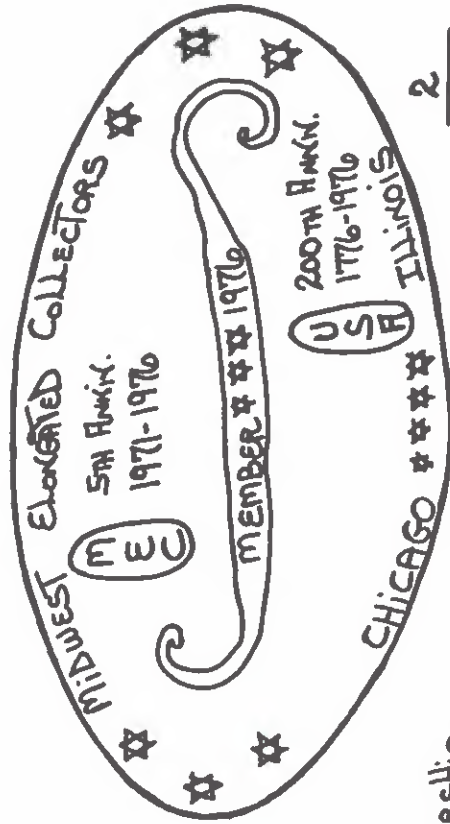 MIDWEST ELONGATED COLLECTORS
MEC
5TH ANNIV.
1971-1976
MEMBER 1976
USA
200TH ANNIV.
1776-1976
CHICAGO ILLINOIS
2